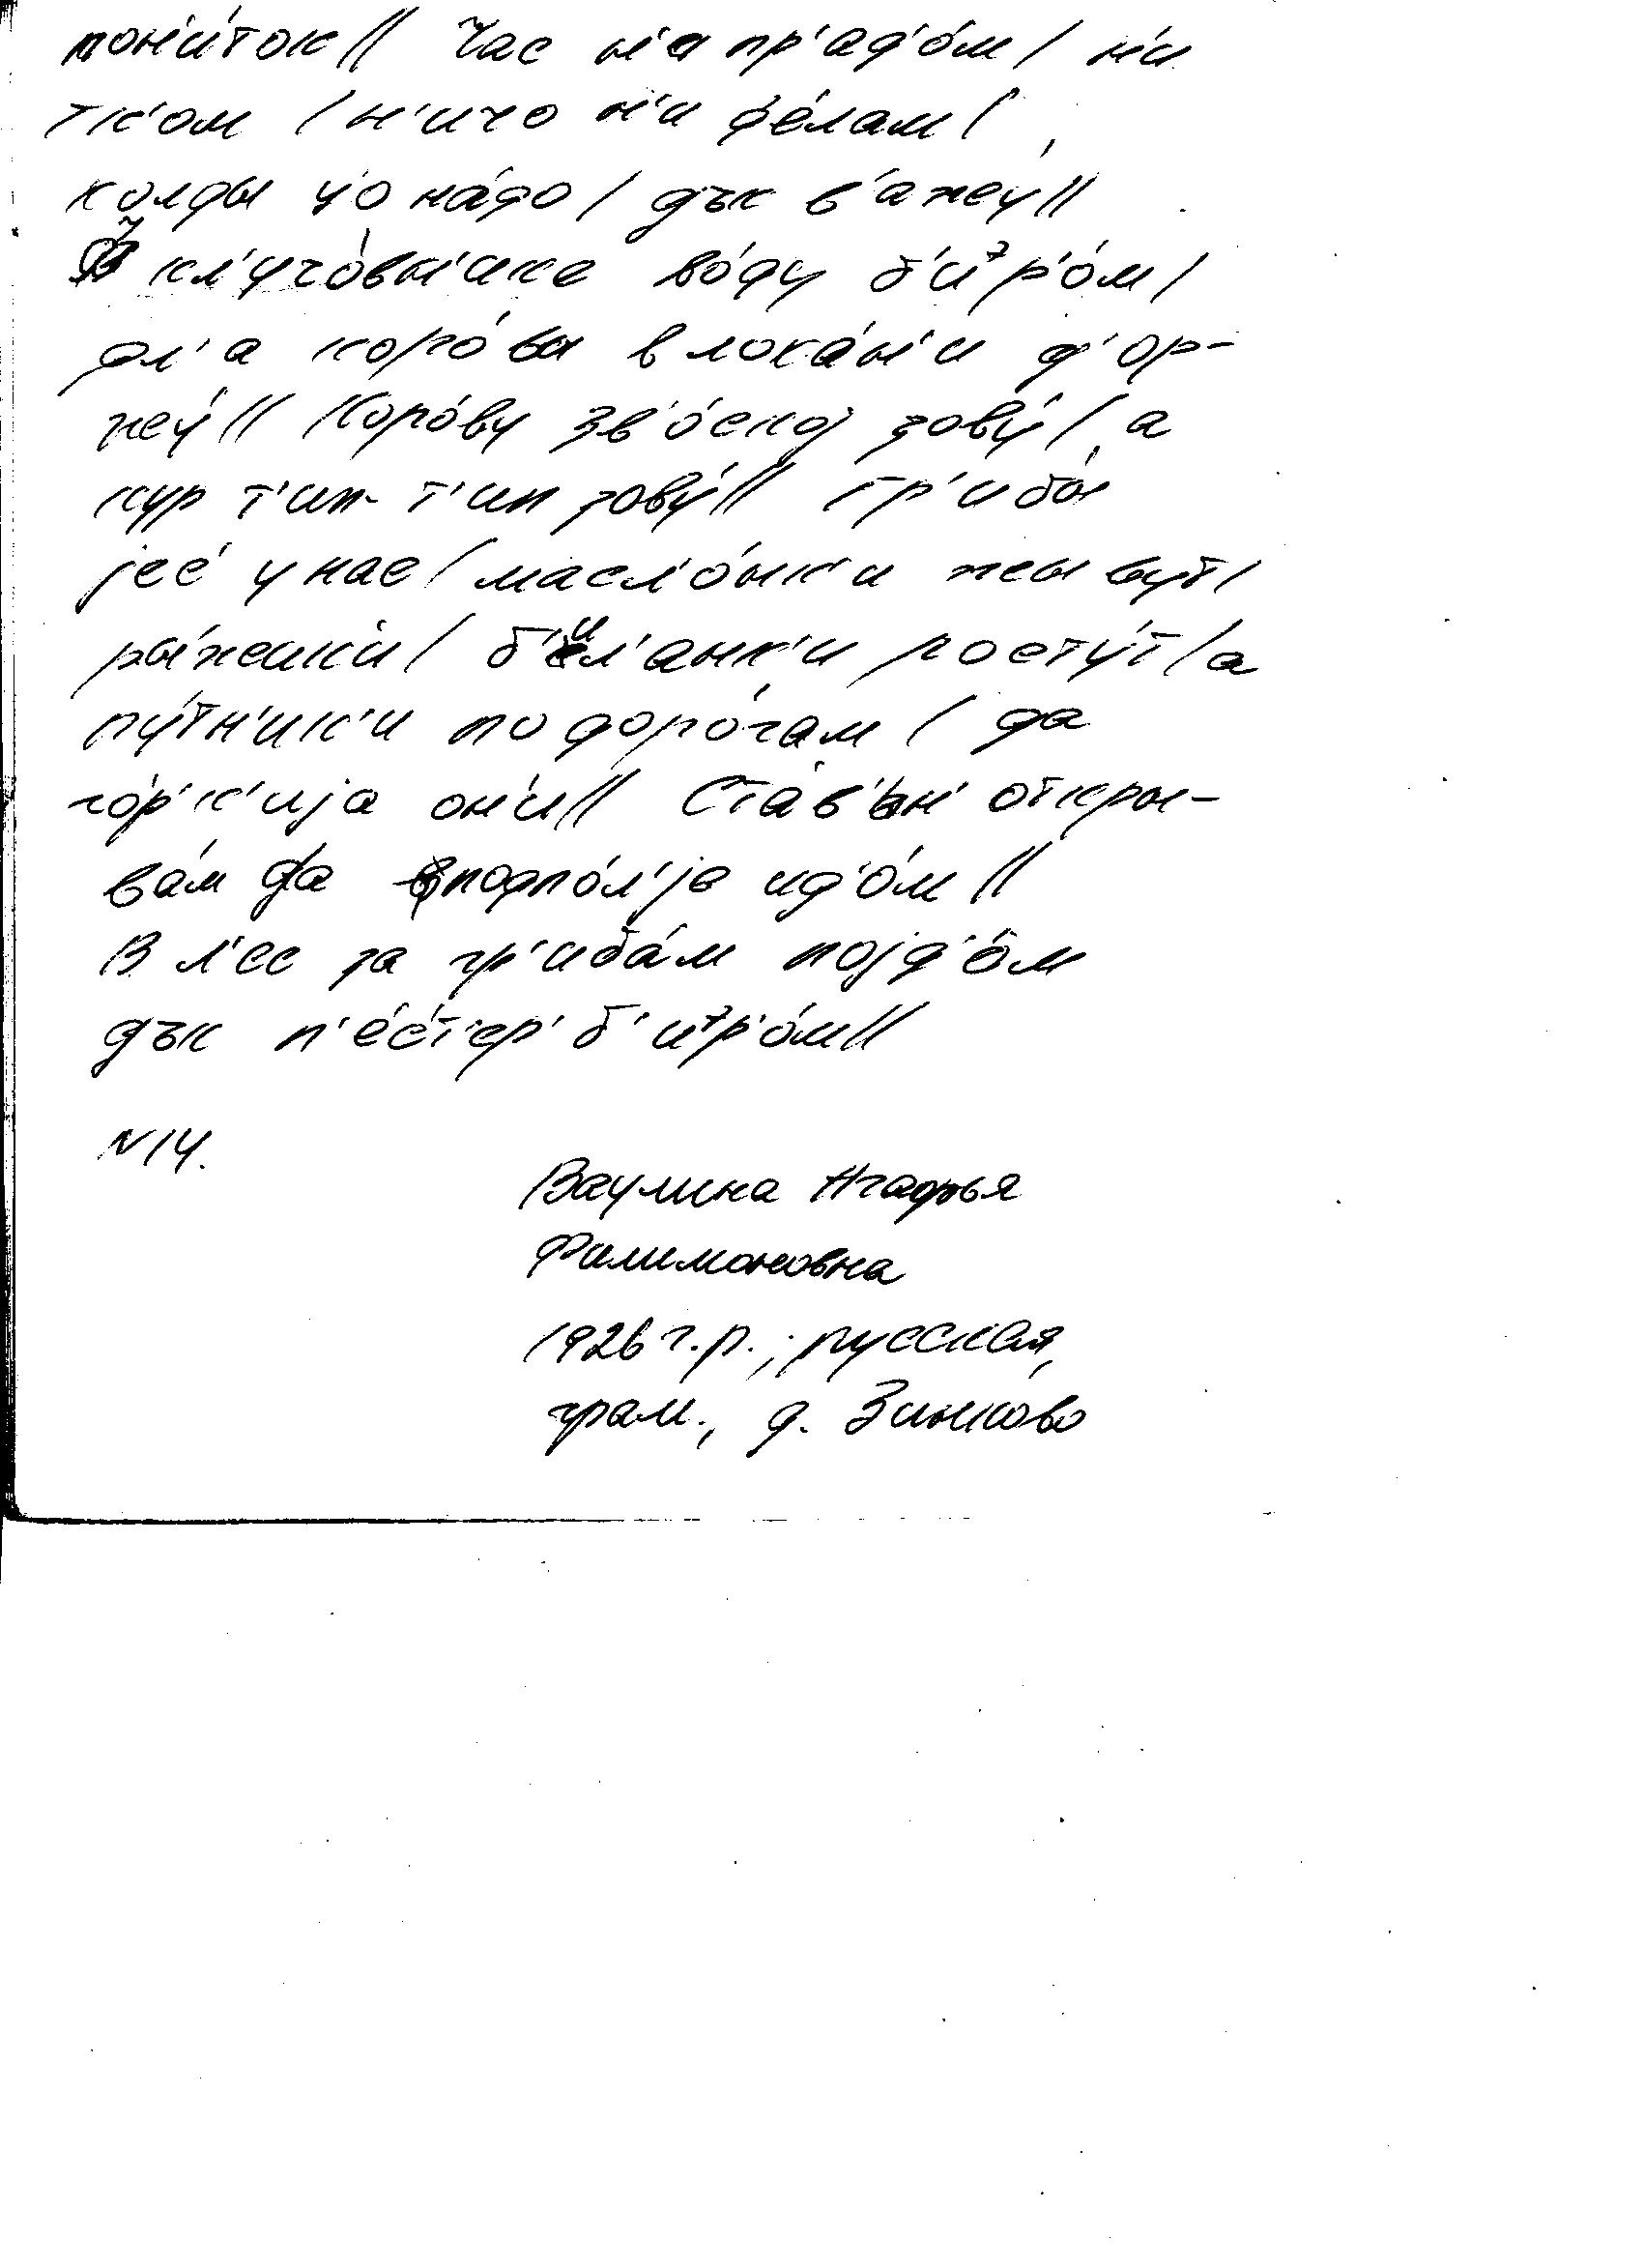 пон'и́ток// Час н'а пр'ад'о́м/ н'и
тк'ом / н'ичо н'и де́лам/
колды цо на́до/ дък в'ажу//
У кл'учо́вн'ика во́ду б'ир'о́м/
дл'а коро́вы в лока́н'и д'ор-
жу́// Коро́ву зв'о́ској зову́/ а
кур т'ип-т'ип зову́// Гр'ибы́
јес' у нас/ масл'о́нк'и жывут/
ры́жык'и/ б'ил'анк'и росту́т/ а
пу́тн'ик'и по доро́гам/ да
го́р'к'ија он'и// Ста́в'ьн' откры-
ва́м да вподпо́л'је ид'о́м//
В л'ес за гр'иба́м појд'о́м
дък п'е́ст'ер' б'ир'о́м//
N14.
Ваулина Агафья
Филимоновна
1926 г.р.; русская,
грам., д. Зинково